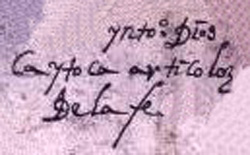 ynto: Dios
Caytoca articolos
Delafe.